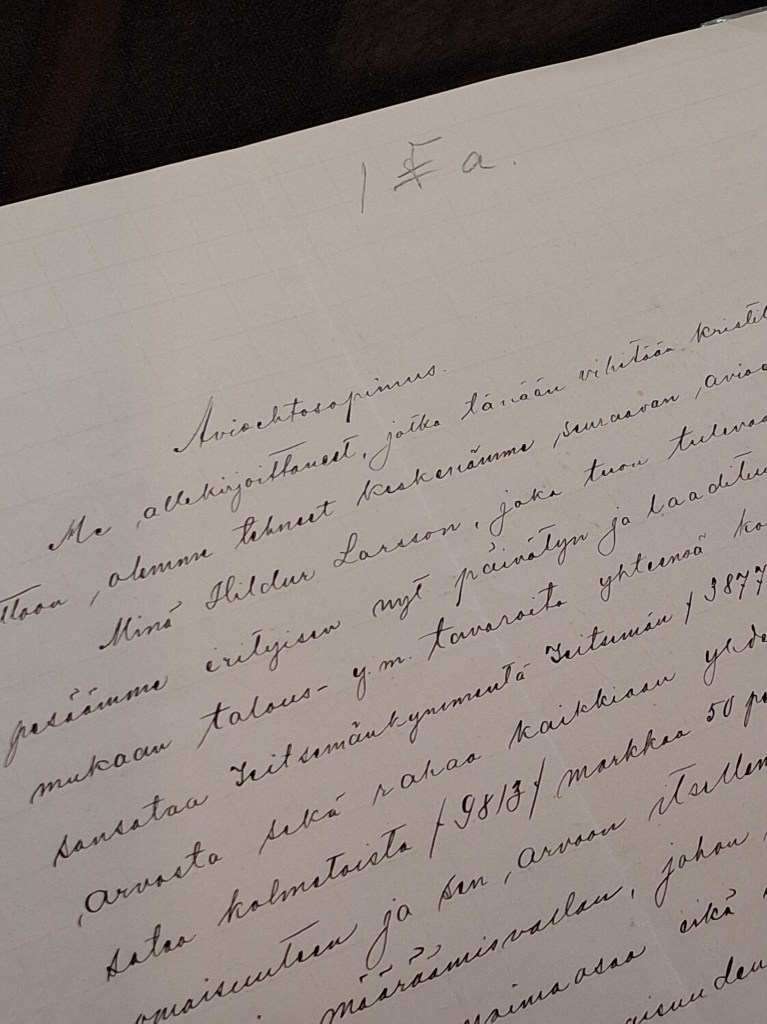 a.
Avioehtosopimus.
Me allekirjoittaneet, jotka tänään vihitään kristil
ttoon, olemme tehneet keskenämme seuraavan avioe
Minä Hildur Larsson, joka tuon tulevaa
pesäämme erityisen nyt päivätyn ja laaditun
mukaan talous- y.m. tavaroita yhteensä ko
sansataa Seitsemänkymmentä Seitsemän / 3877
arvosta sekä rahaa kaikkiaan yhde
sataa kolmetoista / 9813 / markkaa 50 pe
omaisuuteen ja sen arvoon itsellen
määräämisvallan, johon
osaa eikä